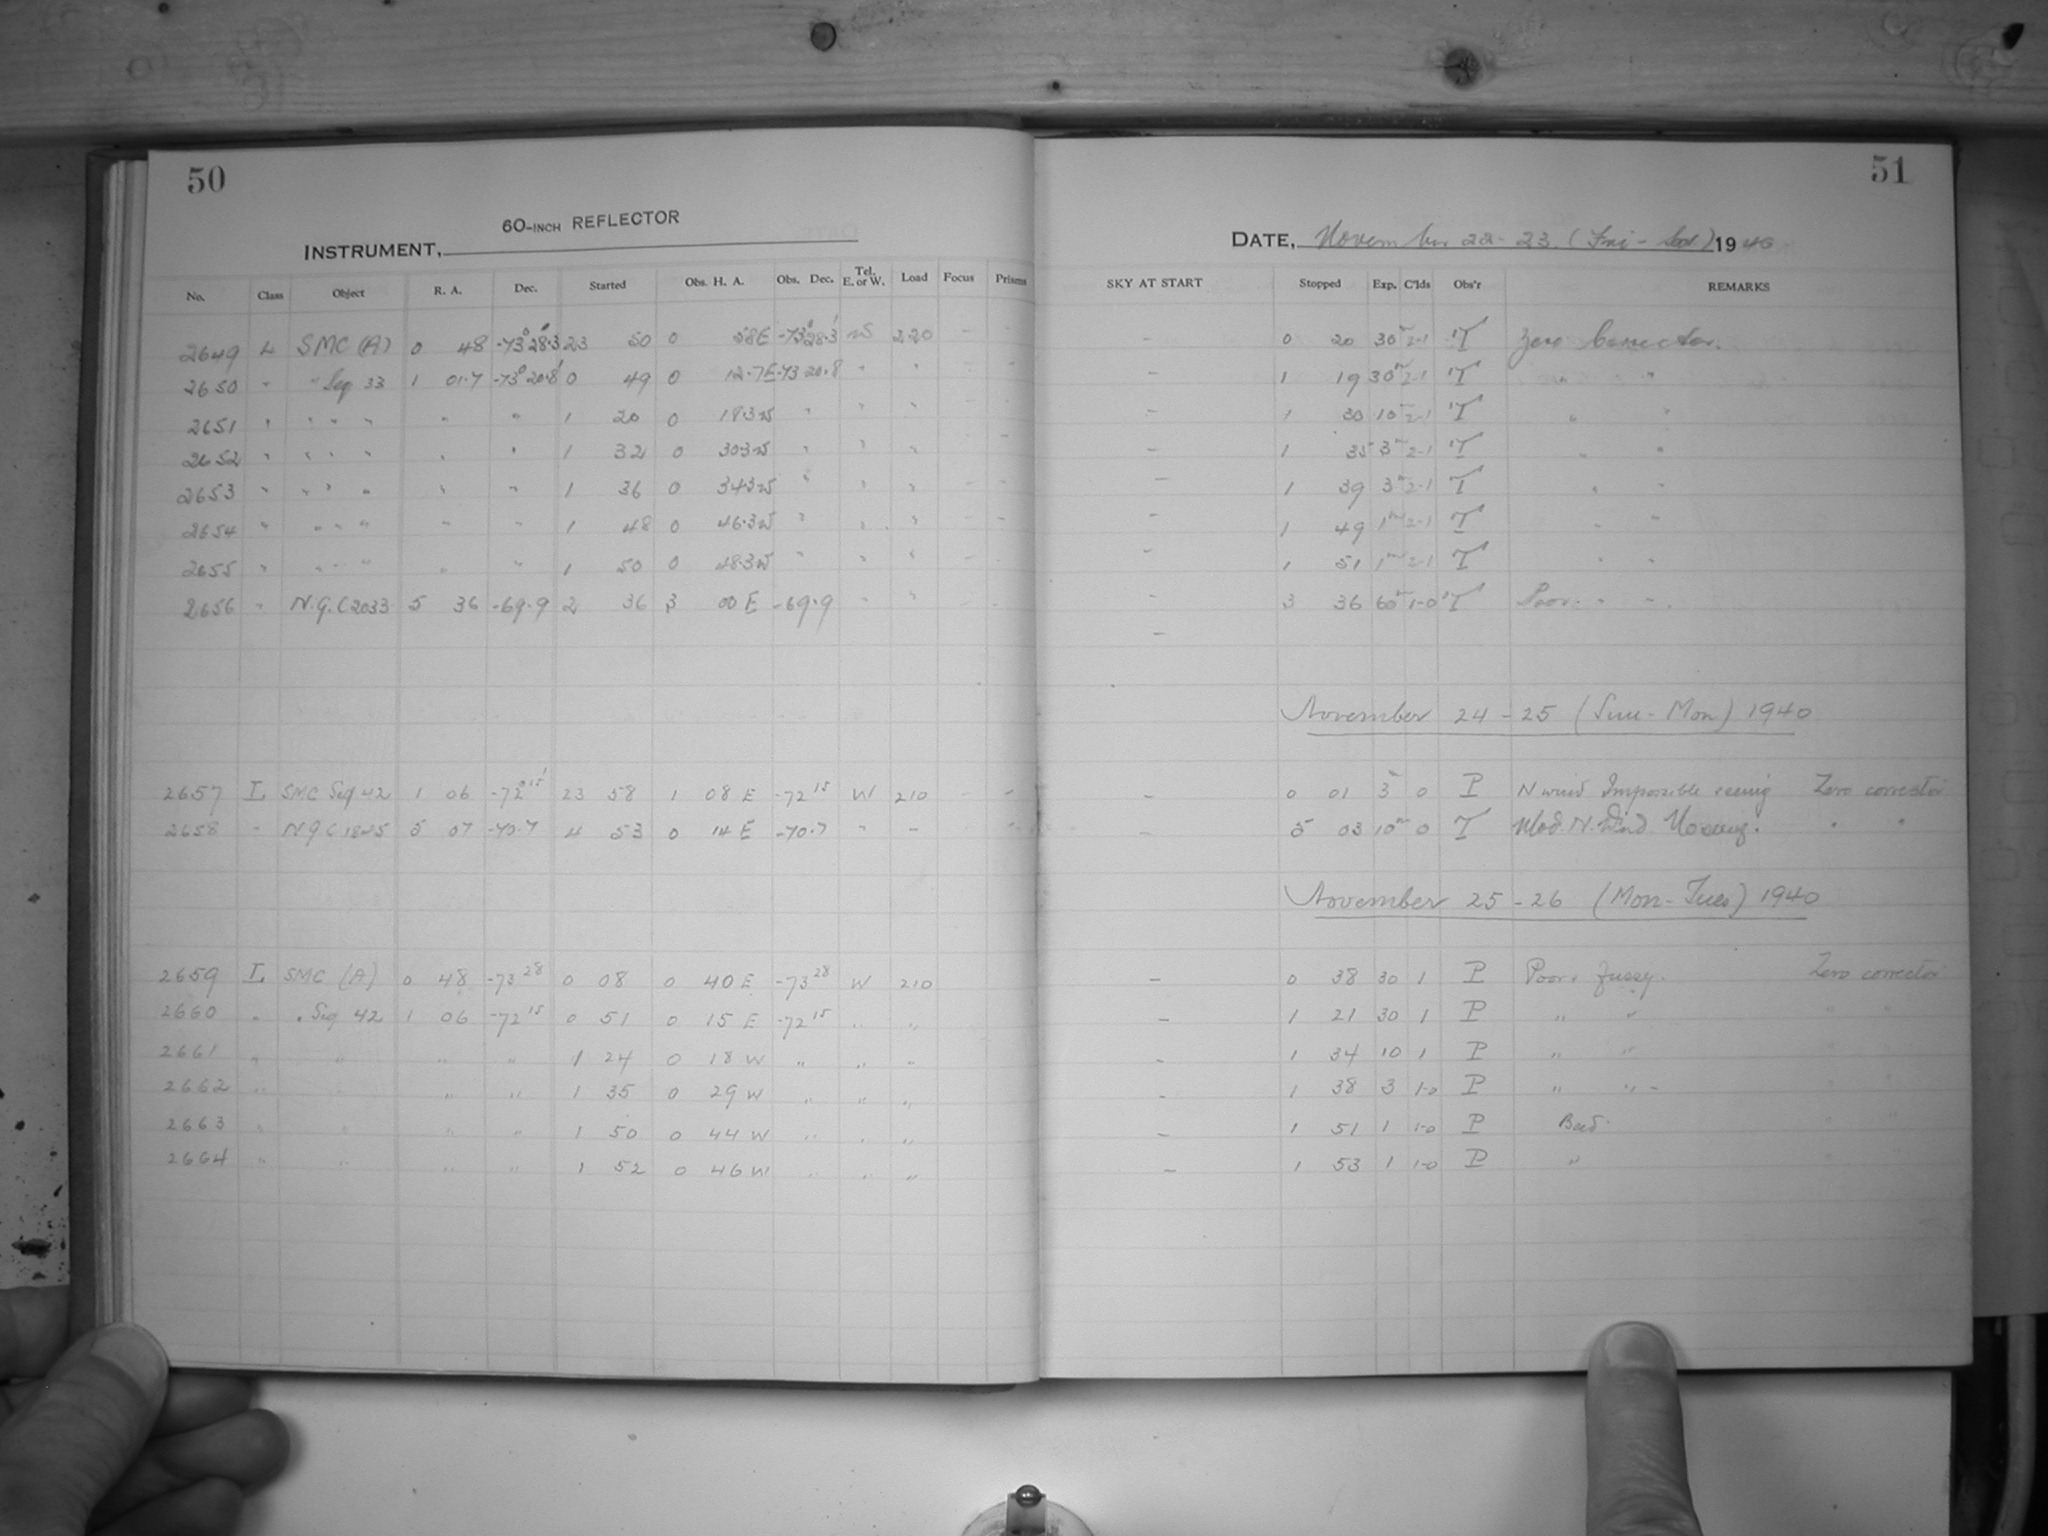 50
60-INCH REFLECTOR
INSTRUMENT,
No. Class Object R. A. Dec. Started Obs. H. A. Obs. Dec. Tel. E. or W. Load Focus Prisms
2649 L SMC (A) 0 48 -73° 28.3' 23 50 0 58E -73° 28.3' W 220 - -
2650 " " Seq 33 1 01.7 -73° 20.8' 0 49 0 12.7E -73 20.8 " "
2651 " " " " " " 1 20 0 18.3W " " "
2652 " " " " " " 1 32 0 30.3W " " "
2653 " " " " " " 1 36 0 34.3W " " "
2654 " " " " " " 1 48 0 46.3W " " "
2655 " " " " " " 1 50 0 48.3W " " "
2656 " N.G.C 2033 5 36 -69.9 2 36 3 00 E -69.9 " "
2657 L SMC Seq 42 1 06 -72° 15' 23 58 1 08 E -72 15 W 210 - -
2658 " N G C 1845 5 07 -70.7 4 53 0 14 E -70.7 " "
2659 L SMC (A) 0 48 -73 28 0 08 0 40 E -73 28 W 210
2660 " " Seq 42 1 06 -72 15 0 51 0 15 E -72 15 " "
2661 " " " " 1 24 0 18 W " " "
2662 " " " " 1 35 0 29 W " " "
2663 " " " " 1 50 0 44 W " " "
2664 " " " " 1 52 0 46 W " " "
51
DATE, November 22-23. (Fri - Sat.) 1940
SKY AT START Stopped Exp. C'lds Obs'r REMARKS
- 0 20 30m 2-1 T Zero Corrector.
- 1 19 30m 2-1 T " "
- 1 30 10m 2-1 T " "
- 1 35 3m 2-1 T " "
- 1 39 3m 2-1 T " "
- 1 49 1m 2-1 T " "
- 1 51 1m 2-1 T " "
- 3 36 60m 1-0 T Poor. " "
-
November 24-25 (Sun-Mon) 1940
- 0 01 3m 0 P N wind Impossible seeing Zero corrector
- 5 03 10m 0 T Mod. N. Wind No seeing. " "
November 25-26 (Mon-Tues) 1940
- 0 38 30 1 P Poor. fuzzy. Zero corrector
- 1 21 30 1 P " " " "
- 1 34 10 1 P " "
- 1 38 3 1-0 P " " -
- 1 51 1 1-0 P Bad.
- 1 53 1 1-0 P "